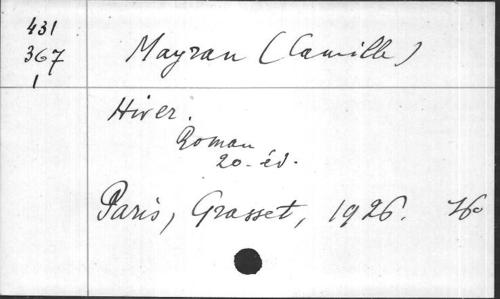 431
367
1
Mayran (Camille)
Hiver.
Roman
20. éd.
Paris, Grasset, 1926.